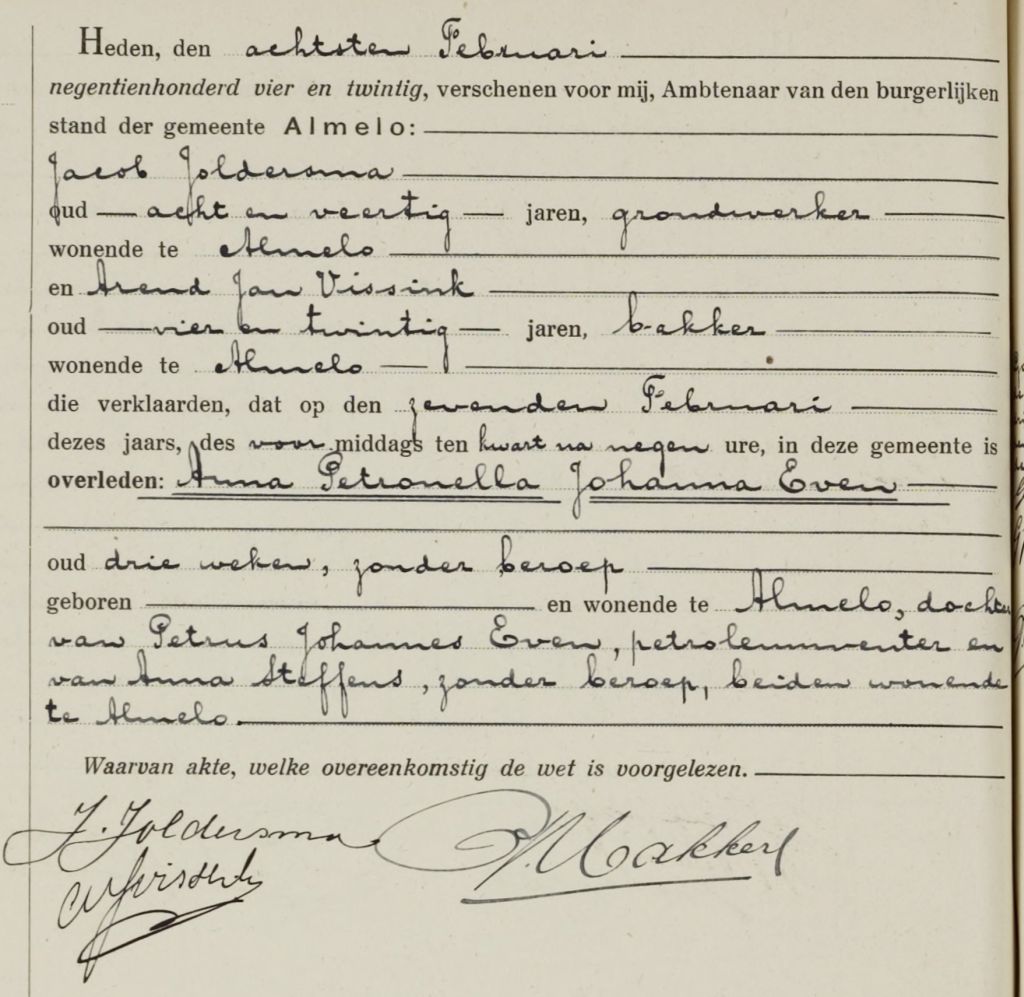 Heden, den achtsten Februari
negentienhonderd vier en twintig, verschenen voor mij, Ambtenaar van den burgerlijken
stand der gemeente Almelo:
Jacob Joldersma
oud acht en veertig jaren, grondwerker
wonende te Almelo
en Arend Jan Vissink
oud vier en twintig jaren, bakker
wonende te Almelo
die verklaarden, dat op den zevenden Februari
dezes jaars, des voor middags ten kwart na negen ure, in deze gemeente is
overleden: Anna Petronella Johanna Even
oud drie weken, zonder beroep
geboren en wonende te Almelo, dochter
van Petrus Johannes Even, petroleumventer en
van Anna Steffens, zonder beroep, beiden wonende
te Almelo.
Waarvan akte, welke overeenkomstig de wet is voorgelezen.
J. Joldersma